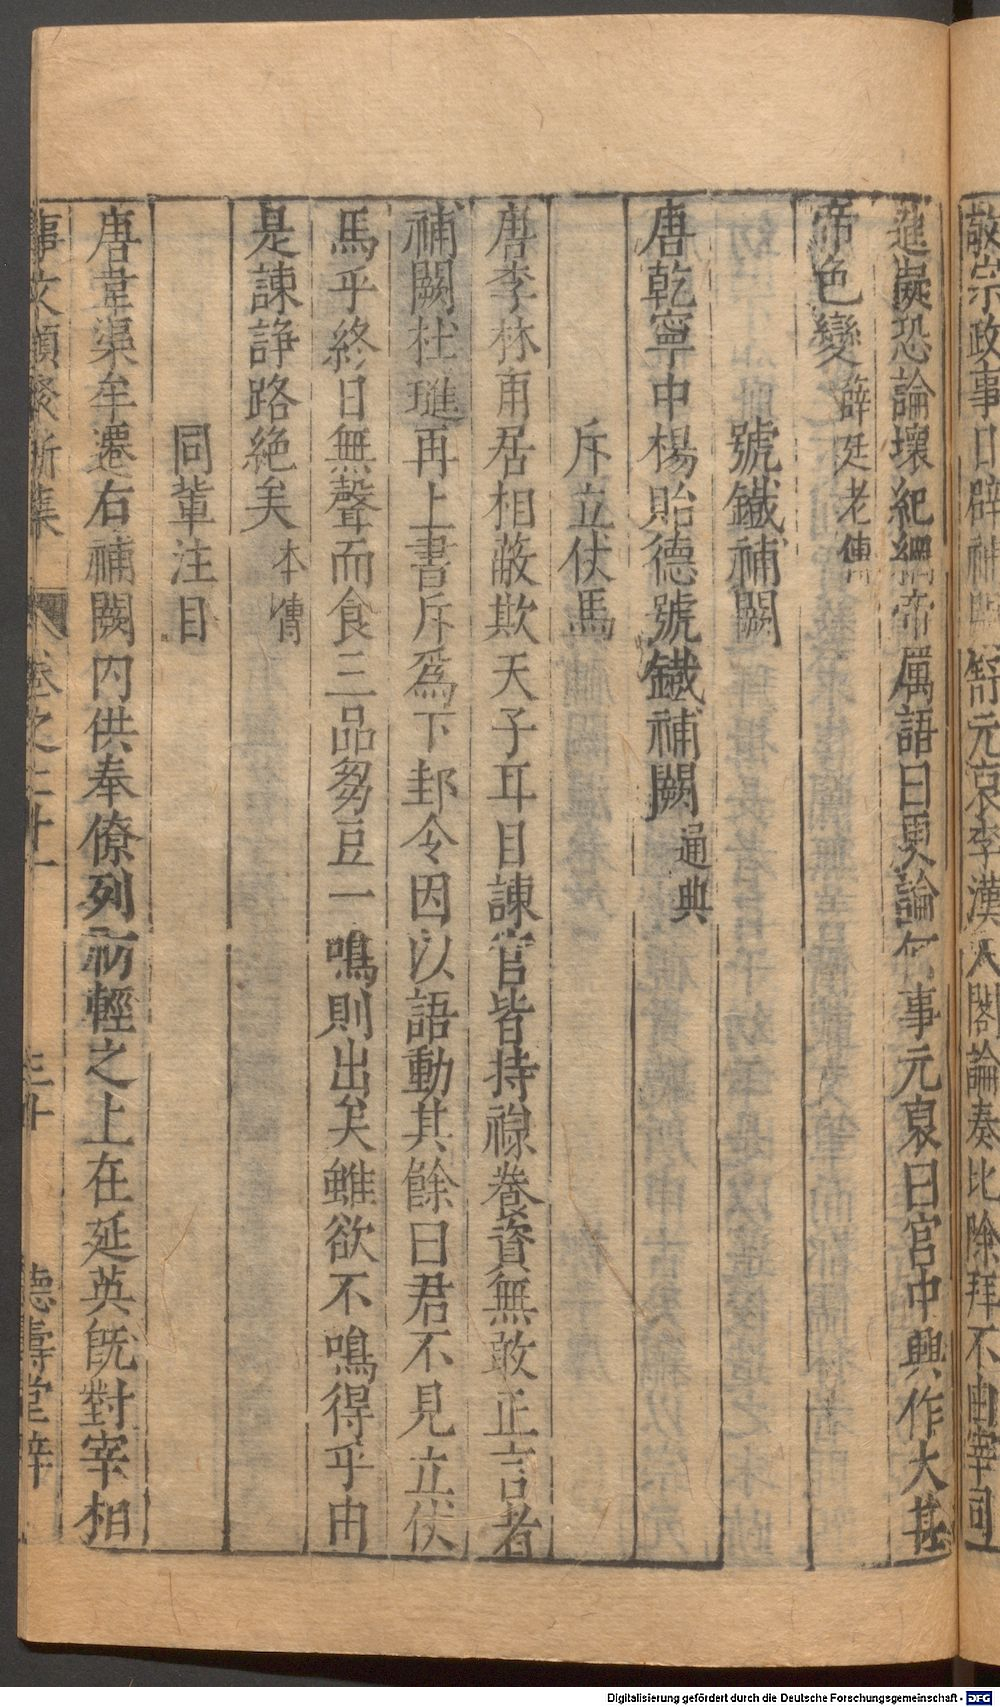 敬宗政事日辟補闕舒元褒李漢入閣論奏比除拜不由宰司
進擬恐論壞紀綱帝厲語曰更論何事元褒曰宮中興作大甚
帝色變薛廷老傳
號鐵補闕
唐乾寧中楊貽德號鐵補闕通典
斥立仗馬
唐李林甫居相蔽欺天子耳目諫官皆持祿養資無敢正言者
補闕杜璡再上書斥爲下邽令因以語動其餘曰君不見立仗
馬乎終日無聲而食三品芻豆一鳴則出矣雖欲不鳴得乎由
是諫諍路絕矣本傳
同輩注目
唐韋渠牟遷右補闕内供奉僚列初輕之上在延英旣對宰相
事文類聚新集 卷之二十一 三十 德壽堂梓
Digitalisierung gefördert durch die Deutsche Forschungsgemeinschaft - DFG